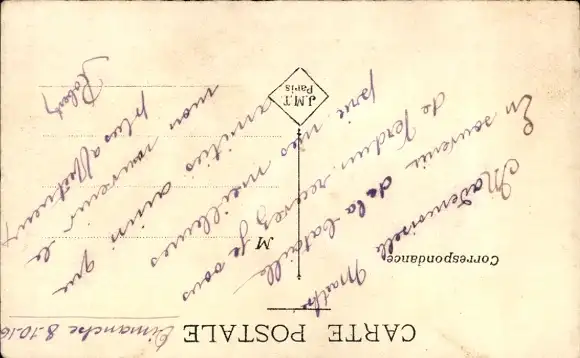 CARTE POSTALE
Correspondance
M
J.M.T
Paris
Dimanche 8.10.16
Mademoiselle
En souvenir
de la bataille
de Verdun recevez je vous
prie mes meilleures
amitiés ainsi que
mon souvenir le
plus affectueux
Robert